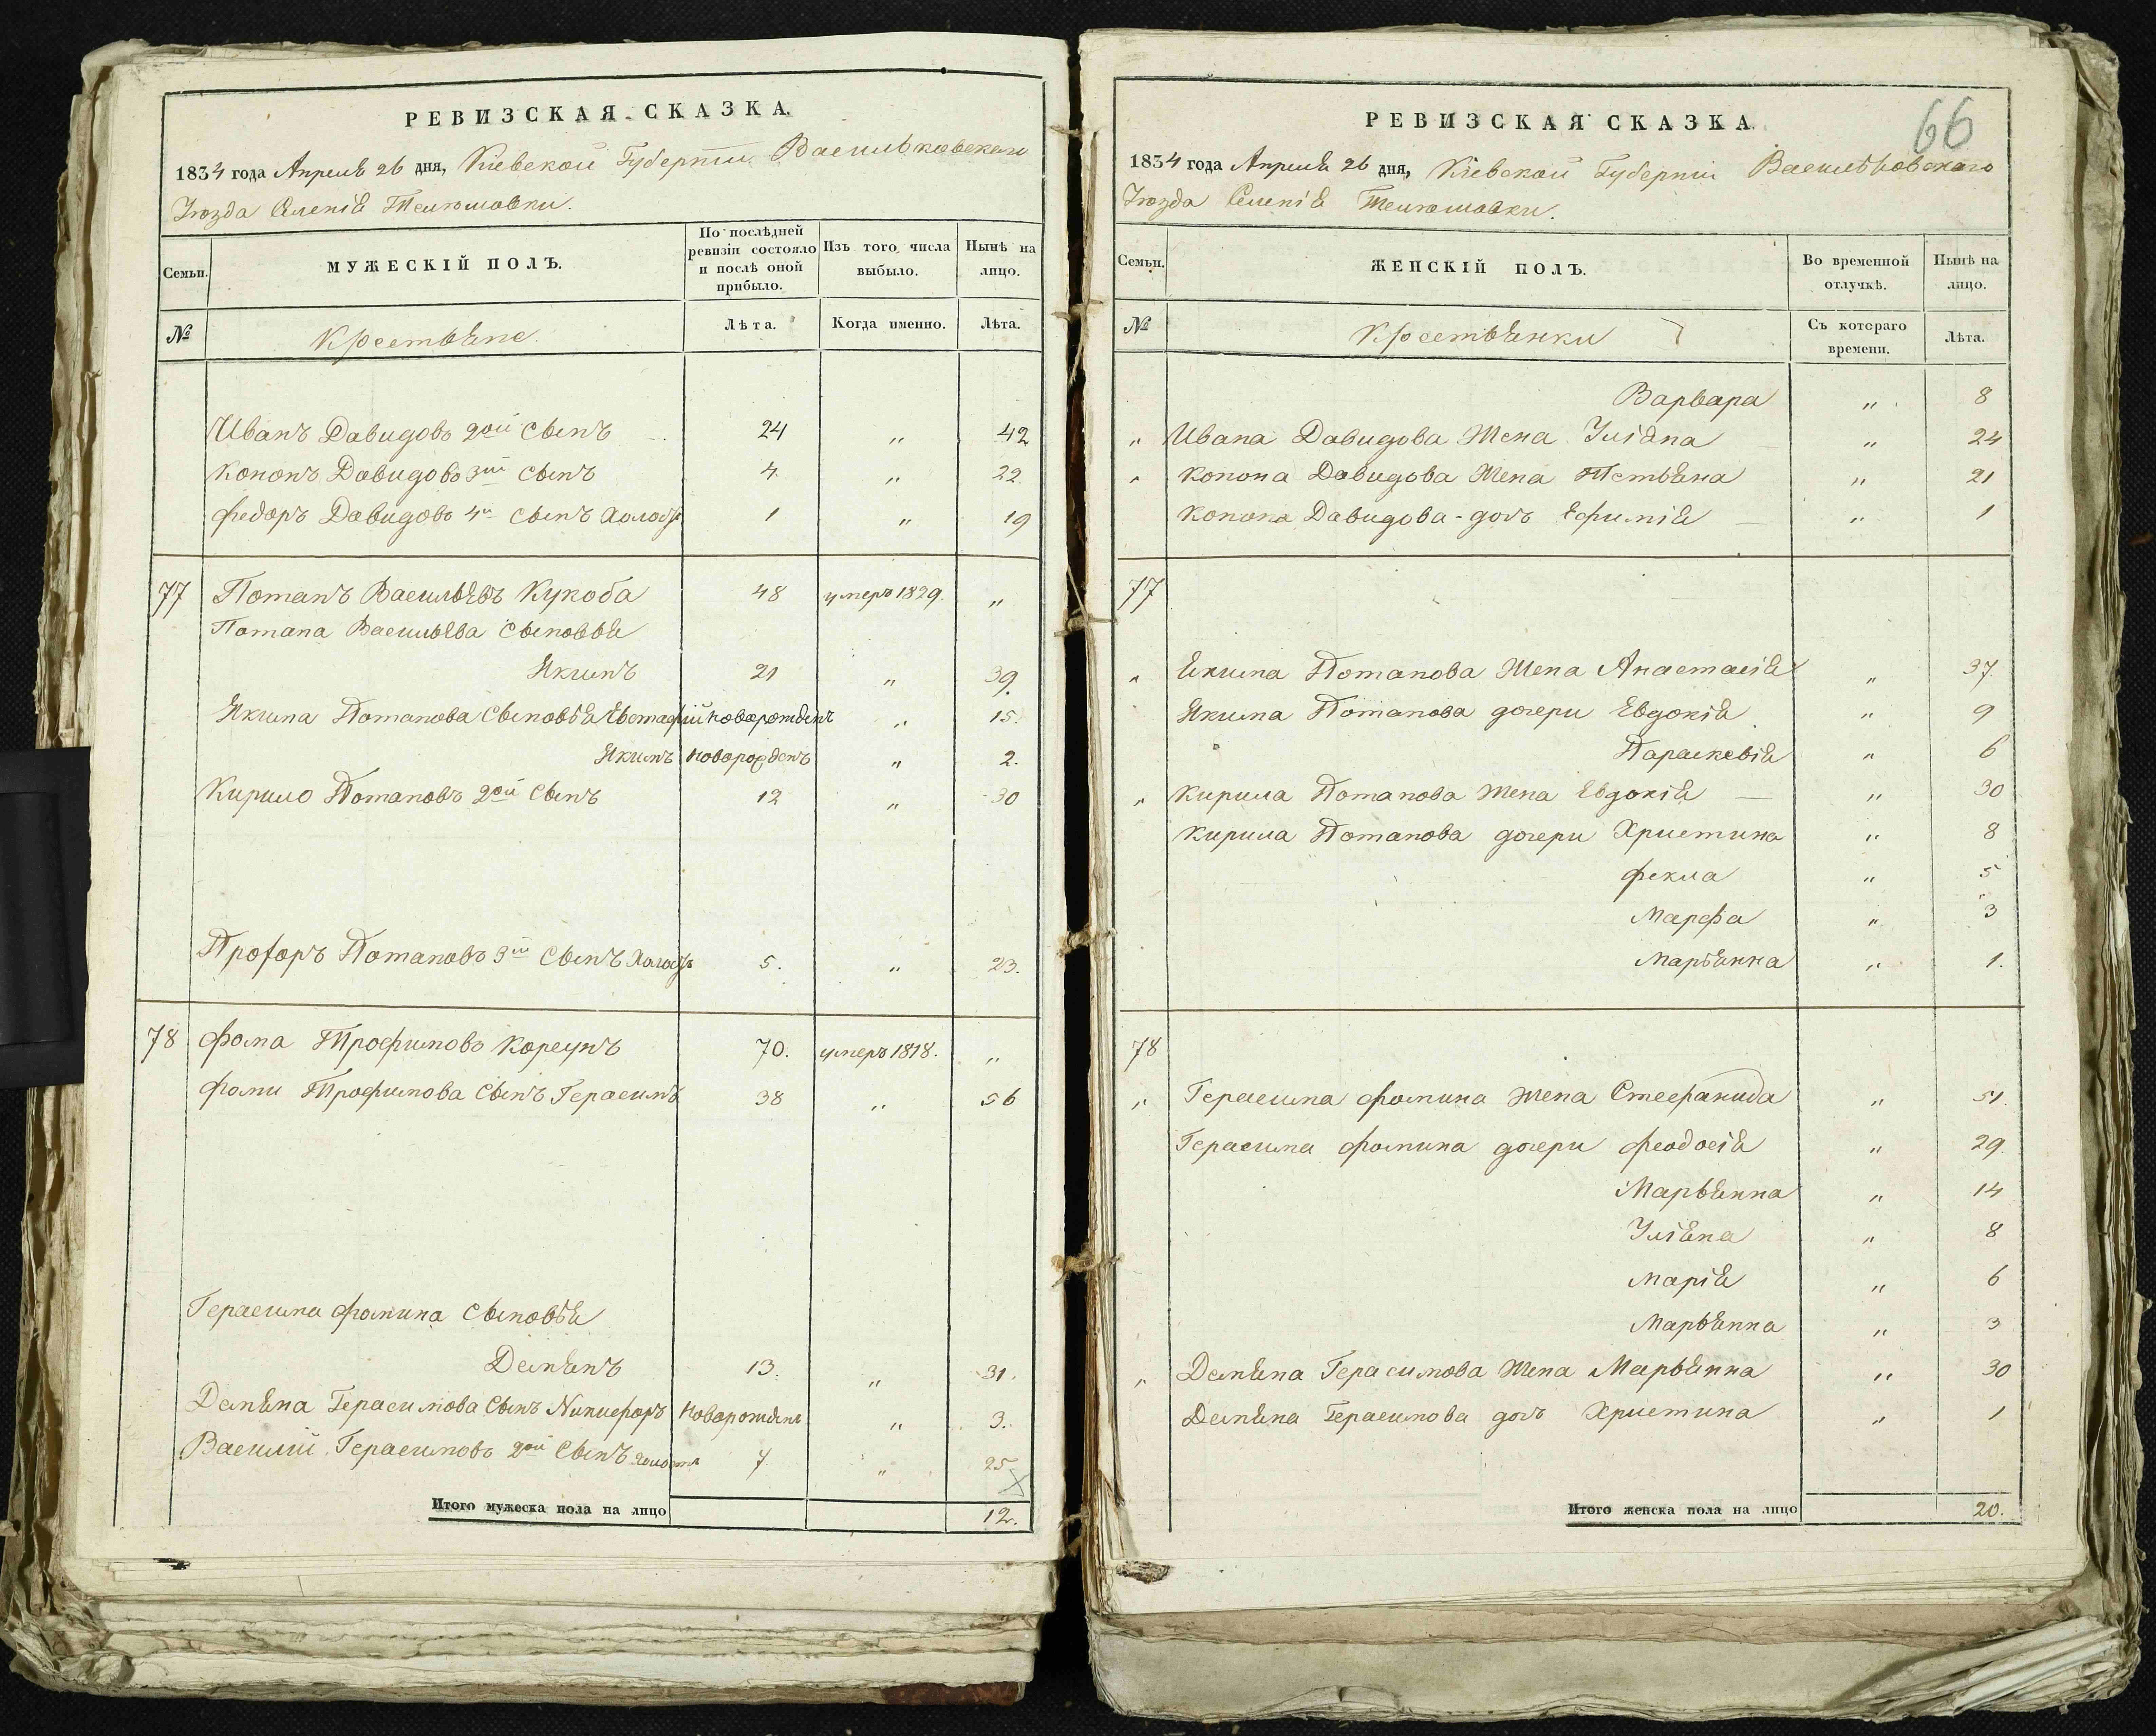 РЕВИЗСКАЯ СКАЗКА.
1834 года Апреля 26 дня, Кіевской Губерніи Васильковскаго
Уѣзда Селенія Телешовки.
Семьи.
МУЖЕСКІЙ ПОЛЪ.
По послѣдней ревизіи состояло и послѣ оной прибыло.
Изъ того числа выбыло.
Нынѣ на лицо.
№
Крестьяне
Лѣта.
Когда именно.
Лѣта.
Иванъ Давидовъ 2ой сынъ 24 „ 42
Кононъ Давидовъ 3ій сынъ 4 „ 22
Федоръ Давидовъ 4й сынъ холостъ 1 „ 19
77 Потапъ Васильевъ Кукоба 48 умеръ 1829. „
Потапа Васильева сыновья
Якимъ 21 „ 39.
Якима Потапова сыновья Евстафій новорожденъ „ 15.
Якимъ новорожденъ „ 2.
Кирило Потаповъ 2ой сынъ 12 „ 30
Прохоръ Потаповъ 3ій сынъ холостъ 5. „ 23.
78 Фома Трофимовъ Корсунъ 70. умеръ 1818. „
Фоми Трофимова сынъ Герасимъ 38 „ 56
Герасима Фомина сыновья
Демянъ 13. „ 31.
Демяна Герасимова сынъ Никифоръ новорожденъ „ 3.
Василий Герасимовъ 2ой сынъ холостъ 7 „ 25
Итого мужеска пола на лицо 12.
66
РЕВИЗСКАЯ СКАЗКА.
1834 года Апреля 26 дня, Кіевской Губерніи Васильковскаго
Уѣзда Селенія Телешовки.
Семьи.
ЖЕНСКІЙ ПОЛЪ.
Во временной отлучкѣ.
Нынѣ на лицо.
№
Крестьянки
Съ котораго времени.
Лѣта.
Варвара „ 8
„ Ивана Давидова жена Уліяна „ 24
„ Конона Давидова жена Тетьяна „ 21
Конона Давидова дочь Ефимія „ 1
77
„ Якима Потапова жена Анастасія „ 37
Якима Потапова дочери Евдокія „ 9
Параскевія „ 6
„ Кирила Потапова жена Евдокія „ 30
Кирила Потапова дочери Христина „ 8
Фекла „ 5
Марфа „ 3
Марьянна „ 1.
78
„ Герасима Фомина жена Стефанида „ 51.
Герасима Фомина дочери Феодосія „ 29.
Марьянна „ 14
Уліяна „ 8
Марія „ 6
Марьянна „ 3
„ Демяна Герасимова жена Марьянна „ 30
Демяна Герасимова дочь Христина „ 1
Итого женска пола на лицо 20.